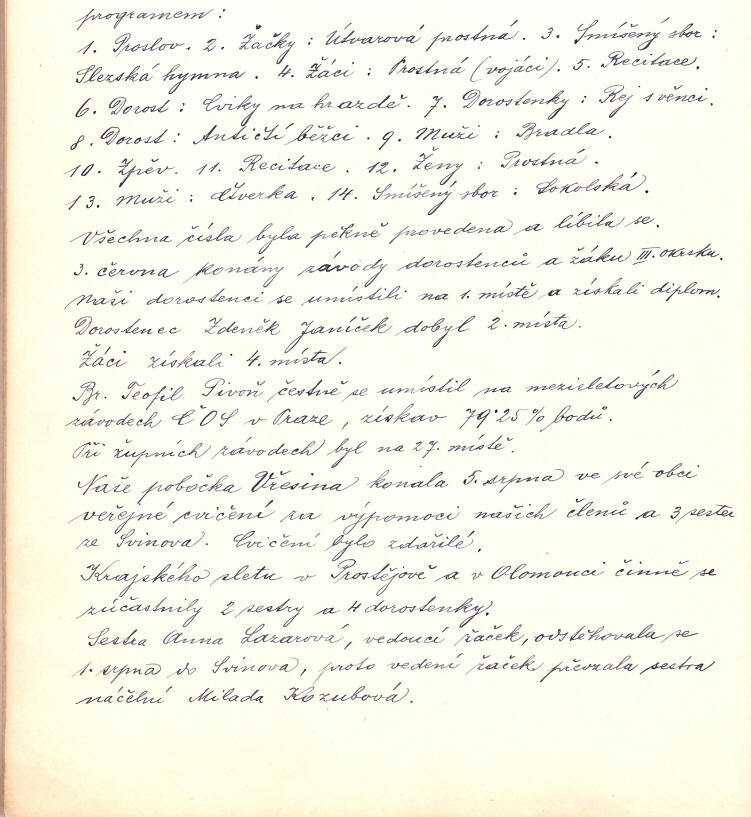 programem :
1. Proslov. 2. Žačky : Útvarová prostná. 3. Smíšený sbor :
Slezská hymna. 4. Žáci : Prostná (vojáci). 5. Recitace.
6. Dorost : Cviky na hrazdě. 7. Dorostenky : Rej s věnci.
8. Dorost : Antičtí běžci. 9. Muži : Bradla.
10. Zpěv. 11. Recitace. 12. Ženy : Prostná.
13. Muži : Čtverka. 14. Smíšený sbor : Sokolská.
Všechna čísla byla pěkně provedena a líbila se.
3. června konány závody dorostenců a žáku III. okrsku.
Naši dorostenci se umístili na 1. místě a získali diplom.
Dorostenec Zdeněk Janíček dobyl 2. místa.
Žáci získali 4. místa.
Br. Teofil Pivoň čestně se umístil na mezisletových
závodech ČOS v Praze, získav 79·25% bodů.
Při župních závodech byl na 27. místě.
Naše pobočka Vřesina konala 5. srpna ve své obci
veřejné cvičení za výpomoci našich členů a 3 sester
ze Svinova. Cvičení bylo zdařilé.
Krajského sletu v Prostějově a v Olomouci činně se
zúčastnily 2 sestry a 4 dorostenky.
Sestra Anna Lazarová, vedoucí žaček, odstěhovala se
1. srpna do Svinova, proto vedení žaček převzala sestra
náčelní Milada Kozubová.